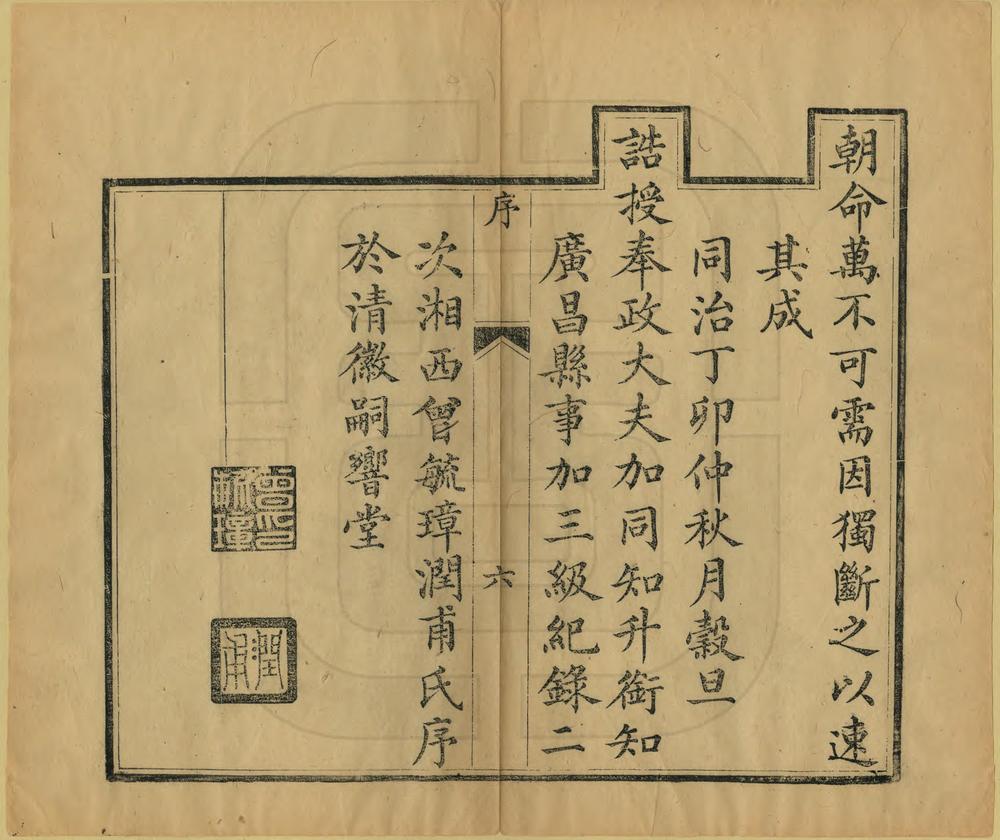 朝命萬不可需因獨斷之以速
其成
同治丁卯仲秋月穀旦
誥授奉政大夫加同知升銜知
廣昌縣事加三級紀錄二
序
六
次湘西曾毓璋潤甫氏序
於清徽嗣響堂
曾印毓璋
潤甫